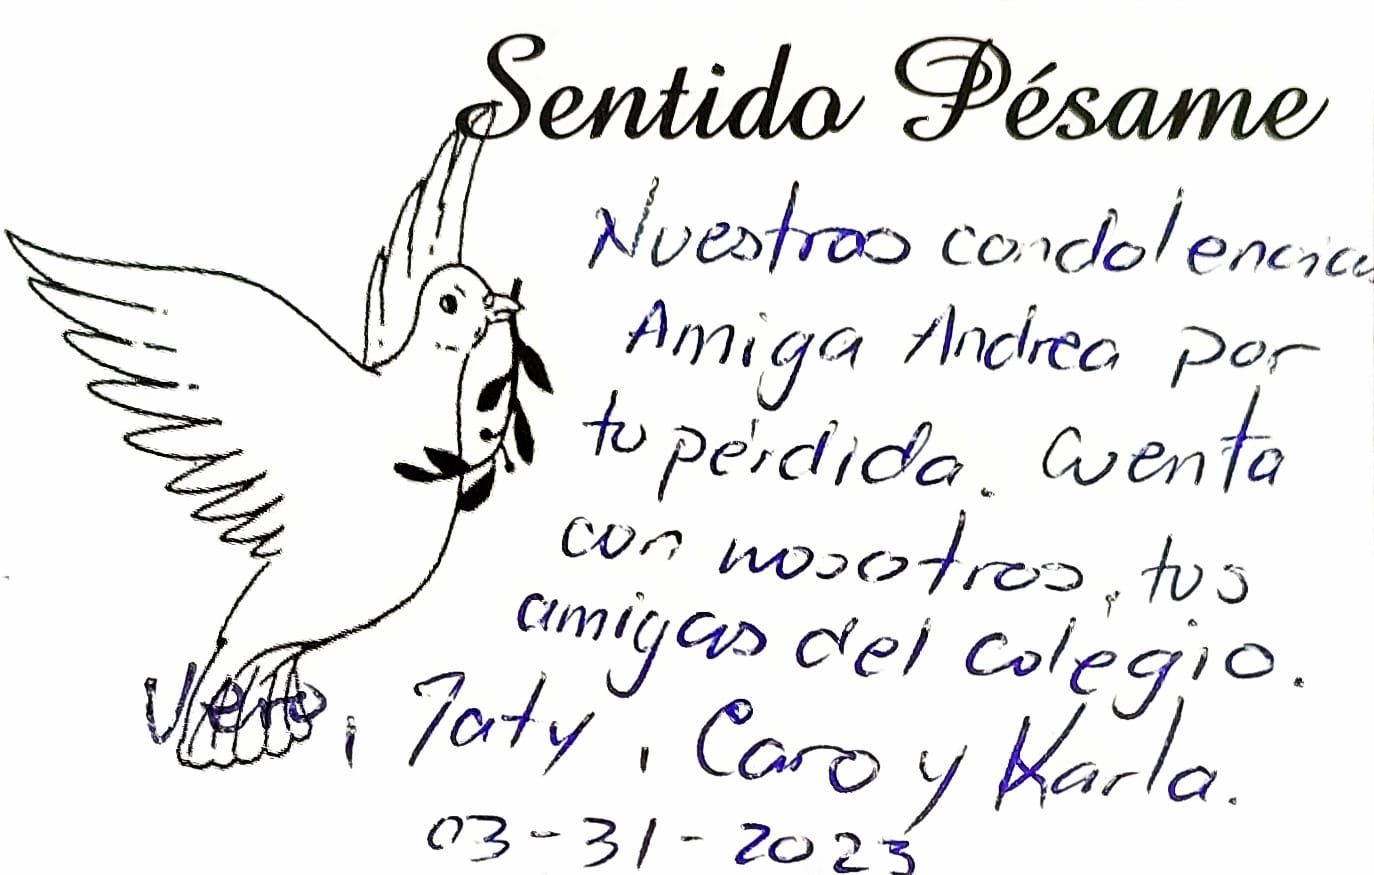 Sentido Pésame
Nuestras condolencias
Amiga Andrea por
tu pérdida. Cuenta
con nosotros, tus
amigas del colegio.
Vero, Taty, Caro y Karla.
03-31-2023